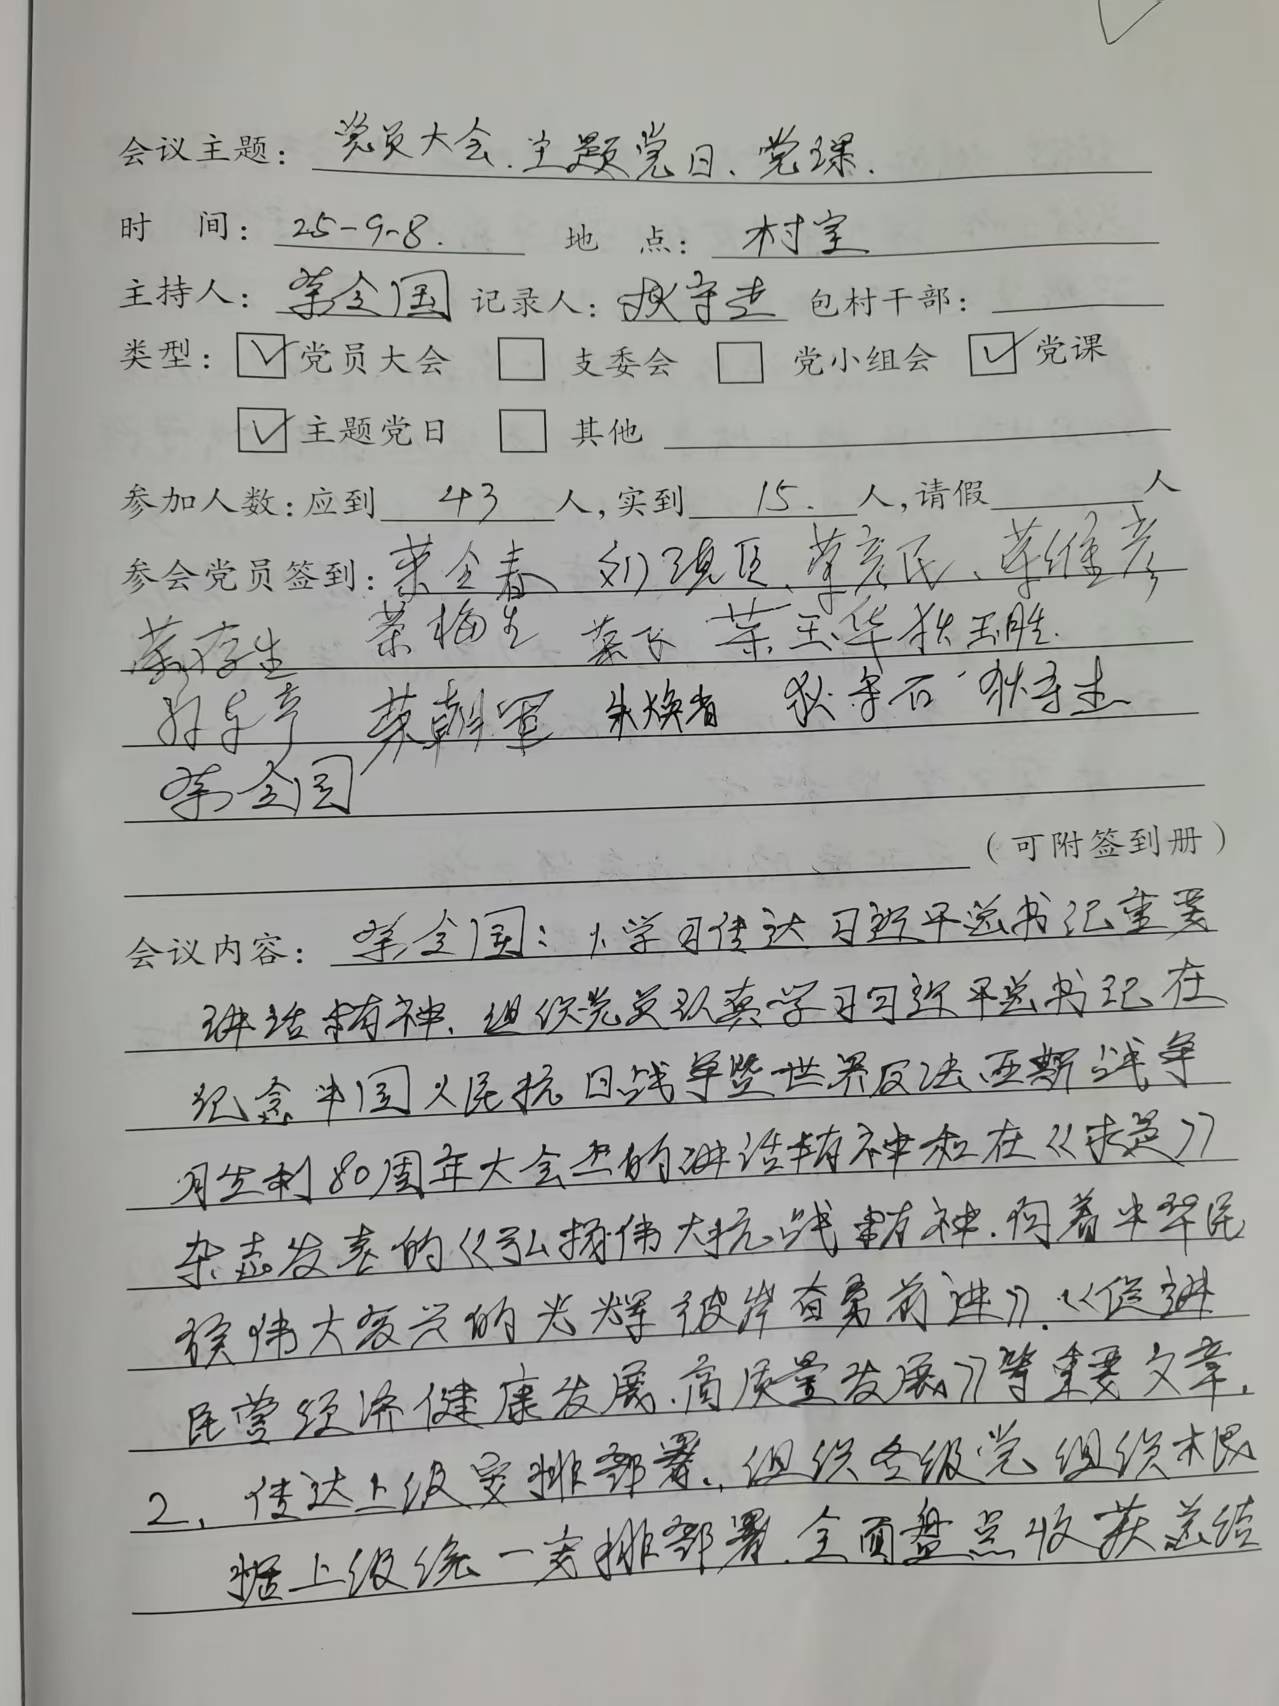 会议主题：党员大会、主题党日、党课.
时 间：25-9-8. 地 点：村室
主持人：荣全国 记录人：狄守杰 包村干部：
类型：☑党员大会 □支委会 □党小组会 ☑党课
☑主题党日 □其他
参加人数：应到 43 人，实到 15. 人，请假 人
参会党员签到：荣全春 刘现臣、荣彦民、荣维彦
荣存生 荣梅生 荣飞 荣玉华 狄玉胜.
荣朝军 朱焕省 狄守石 狄守杰
荣全国
（可附签到册）
会议内容：荣全国：1、学习传达习近平总书记重要
讲话精神. 组织党员认真学习习近平总书记在
纪念中国人民抗日战争暨世界反法西斯战争
胜利80周年大会上的讲话精神和在《求是》
杂志发表的《弘扬伟大抗战精神.向着中华民
族伟大复兴的光辉彼岸奋勇前进》.《促进
民营经济健康发展、高质量发展》等重要文章.
2、传达上级安排部署.组织各级党组织根
据上级统一安排部署.全面盘点收获总结